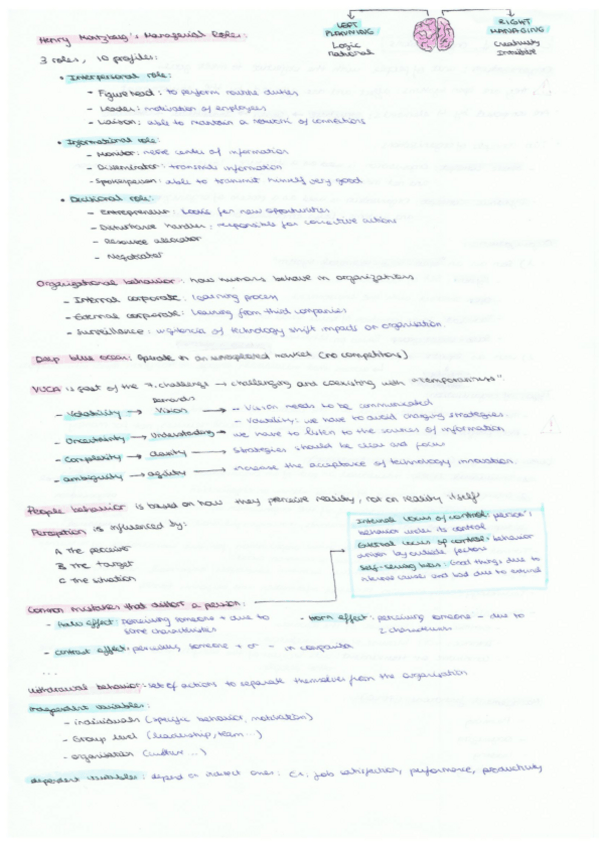 LEFT
PLANNING
Logic
Rational
RIGHT
MANAGING
Creativity
Intuitive
Henry Mintzberg's Managerial Roles:
3 roles, 10 profiles:
• Interpersonal role:
- Figurehead: to perform routine duties
- Leader: motivation of employees
- Liaison: able to maintain a network of connections
• Informational role:
- Monitor: nerve center of information
- Disseminator: transmits information
- Spokesperson: able to transmit himself very good
• Decisional role:
- Entrepreneur: looks for new opportunities
- Disturbance handler: responsible for corrective actions
- Resource allocator
- Negotiator
Organizational behavior: how humans behave in organizations
- Internal corporate: learning process
- External corporate: learning from third companies
- Surveillance: vigilance of technology shift impacts on organisation
Deep blue ocean: Operate in an unexplored market (no competitors)
VUCA is part of the challenge → challenging and coexisting with "temporariness".
- Volatility → Vision → - Vision needs to be communicated
- Volatility: we have to avoid changing strategies.
- Uncertainty → Understanding → we have to listen to the sources of information
- Complexity → clarity → Strategies should be clear and focus
- ambiguity → agility → increase the acceptance of technology innovation
People behavior is based on how they perceive reality, not on reality itself
Perception is influenced by:
A The perceiver
B The target
C The situation
Internal locus of control: person's
behavior under its control
External locus of control: behavior
driven by outside factors
Self-serving bias: Good things due to
internal causes and bad due to external
Common mistakes that distort a person:
- halo effect: perceiving someone + due to
some characteristics
- horn effect: perceiving someone - due to
characteristics
- contrast effect: perceiving someone + or - in
...
withdrawal behavior: set of actions to separate themselves from the organisation
independent variables:
- individuals (specific behavior, motivation)
- Group level (leadership, team...)
- organisation (culture...)
dependent variables: depend on ones: job satisfaction, performance, productivity